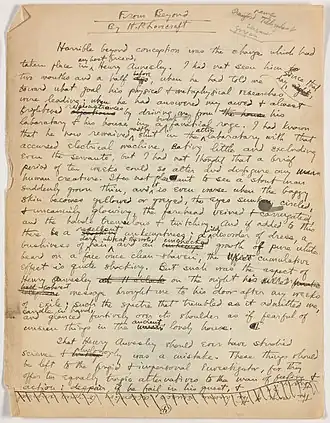 From Beyond
By H. P. Lovecraft
Horrible beyond conception was the change which had
taken place in my best friend, Henry Annesley. I had not seen him since that day
two months and a half before, when he had told me
toward what goal his physical & metaphysical researches
were leading; when he had answered my awed & almost
frightened remonstrances by driving me from his
laboratory & his house in a burst of fanatical rage. I had known
that he now remained mostly shut in the laboratory with that
accursed electrical machine, eating little and excluding
even the servants, but I had not thought that a brief
period of ten weeks could so alter and disfigure any
human creature. It is not pleasant to see a stout man
suddenly grown thin, and it is even worse when the baggy
skin becomes yellowed or greyed, the eyes sunken, circled
& uncannily glowing, the forehead veined & corrugated
and the hands tremulous & twitching. And if added to this
there be a repellent unkemptness; a wild disorder of dress, a
bushiness of dark hair white at the roots, and an unchecked growth of pure white
beard on a face once clean-shaven, the cumulative
effect is quite shocking. But such was the aspect of
Henry Annesley on the night his
half-coherent message brought me to his door after my weeks
of exile; such the spectre that trembled as it admitted me,
candle in hand, and glanced furtively over its shoulder as if fearful of
unseen things in the ancient, lonely house.
That Henry Annesley should ever have studied
science & philosophy was a mistake. These things should
be left to the frigid & impersonal investigator, for they
offer two equally tragic alternatives to the man of feeling &
action; despair if he fail in his quest, &